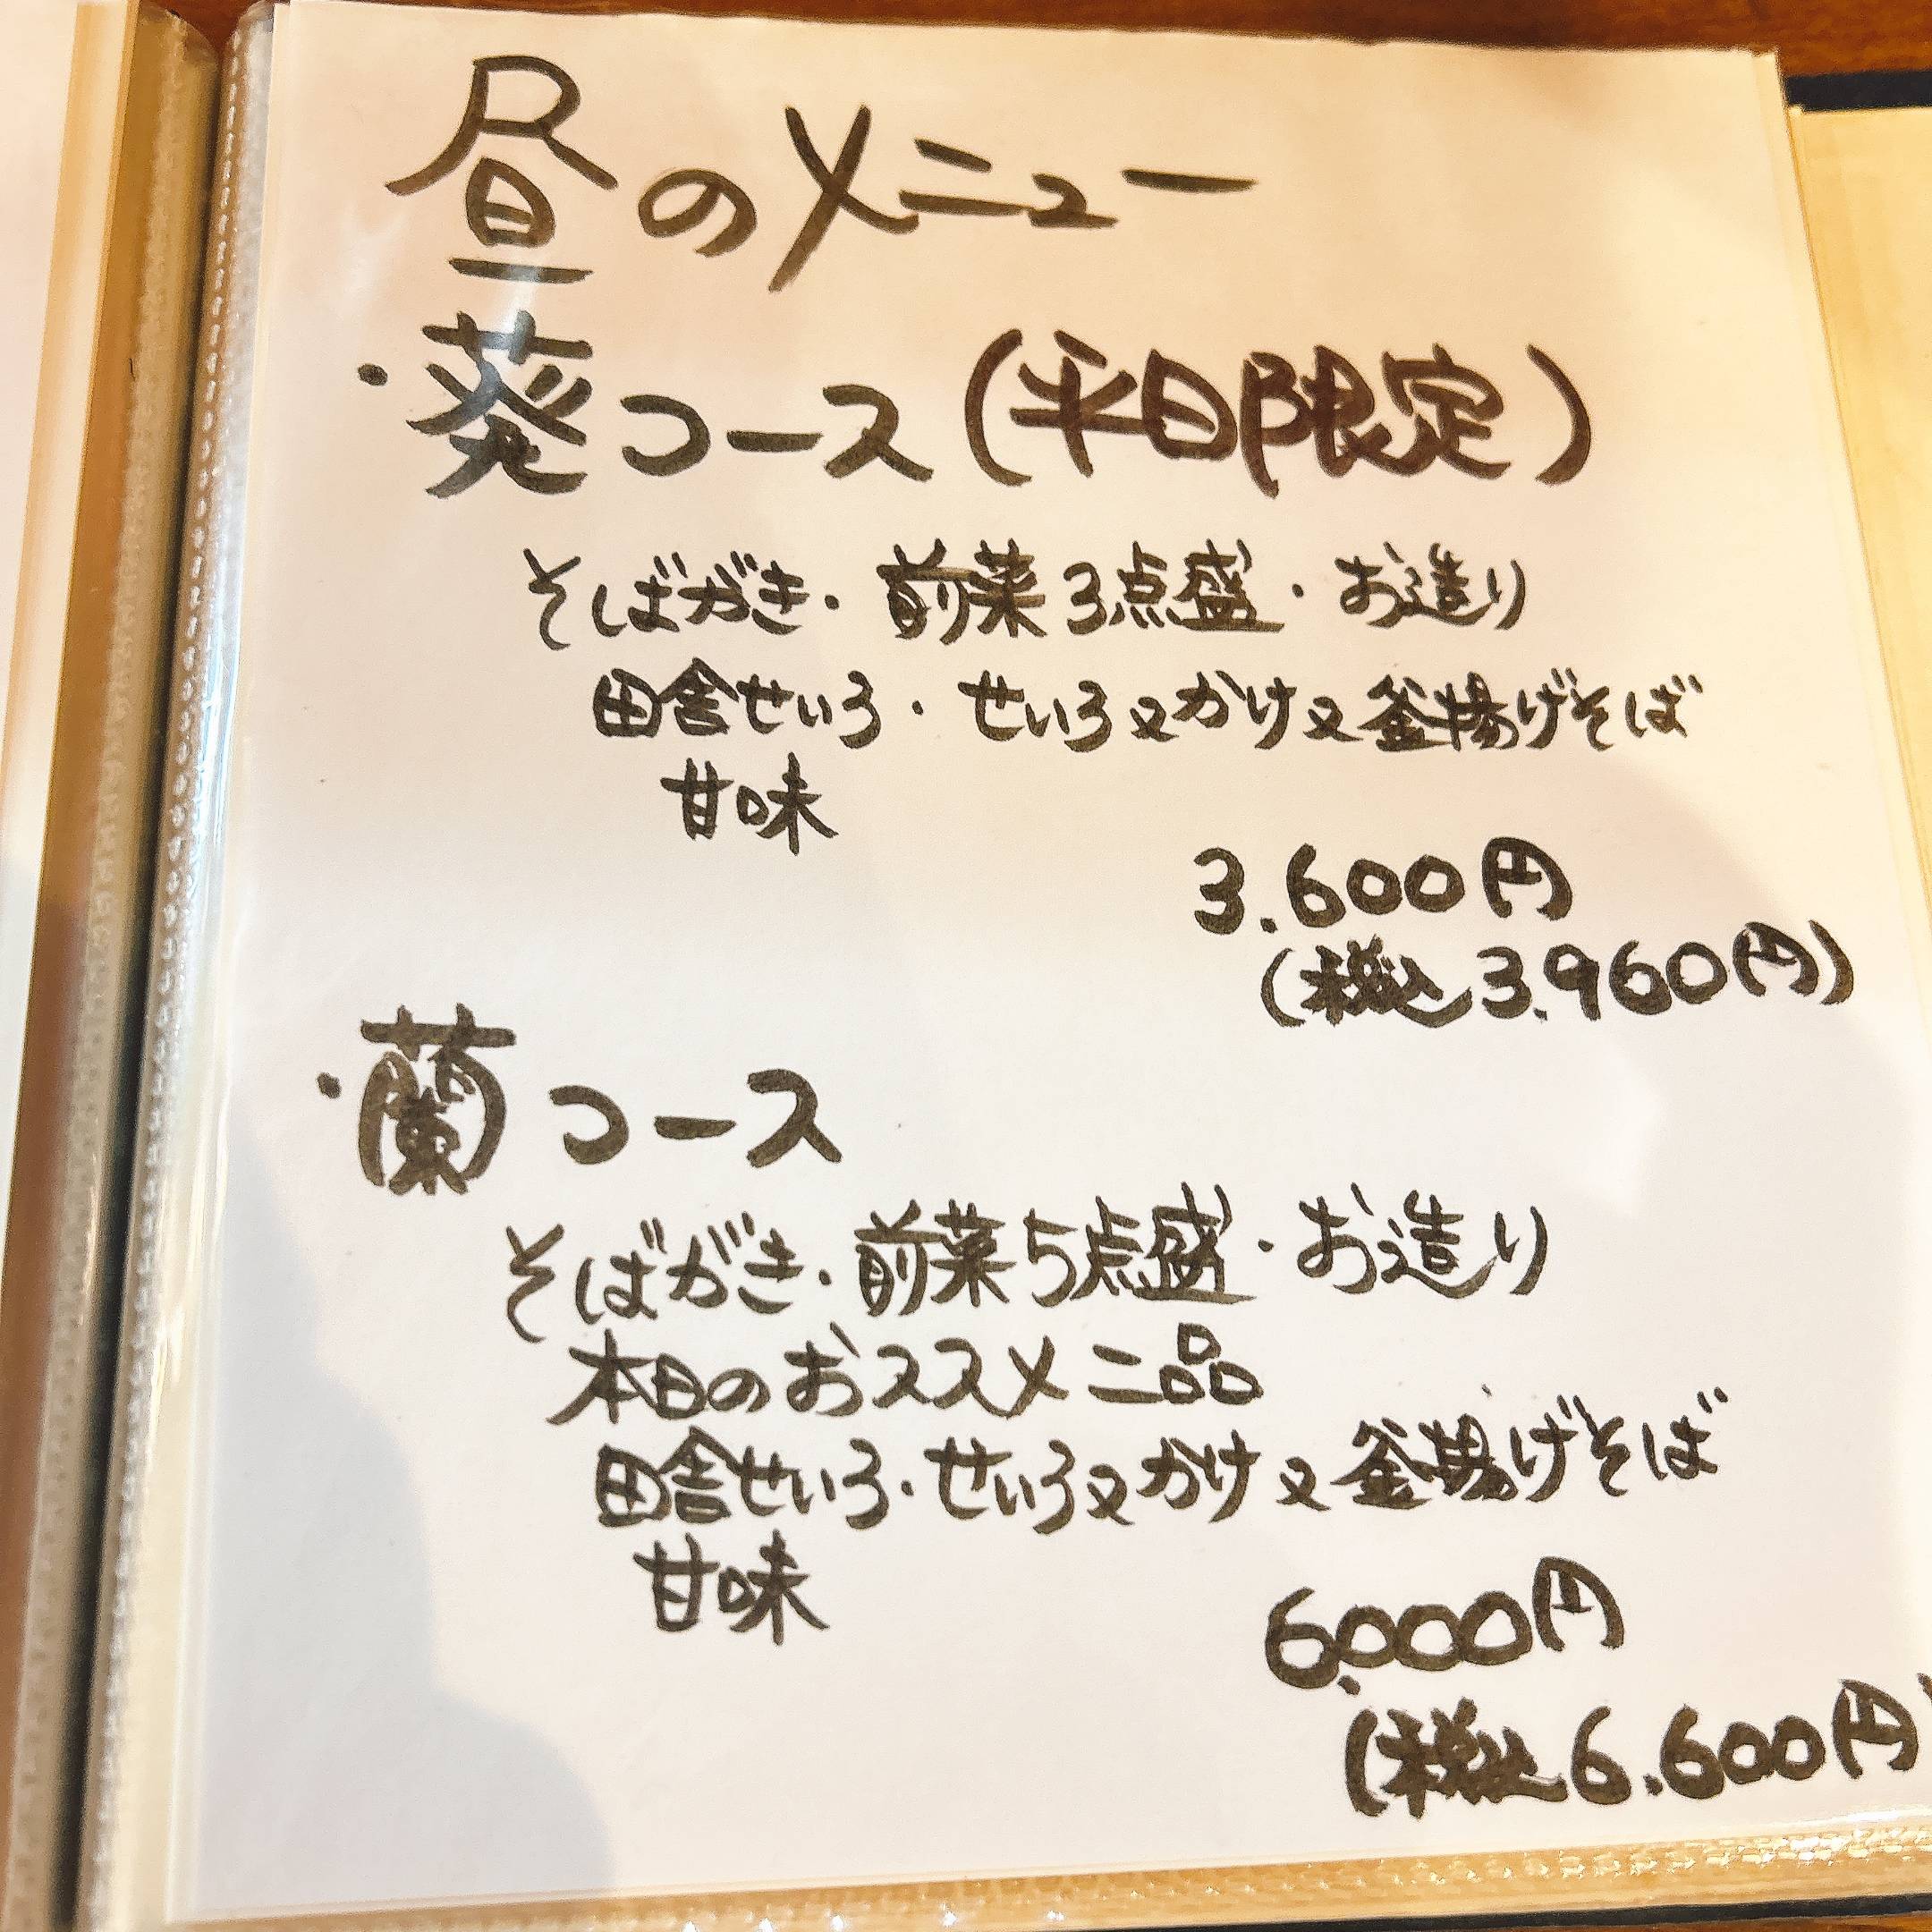 昼のメニュー
・葵コース(平日限定)
そばがき・前菜3点盛・お造り
田舎せいろ・せいろ又かけ又釜揚げそば
甘味
3.600円
(税込3.960円)
・蘭コース
そばがき・前菜5点盛・お造り
本日のおススメ二品
田舎せいろ・せいろ又かけ又釜揚げそば
甘味
6.000円
(税込6.600円)